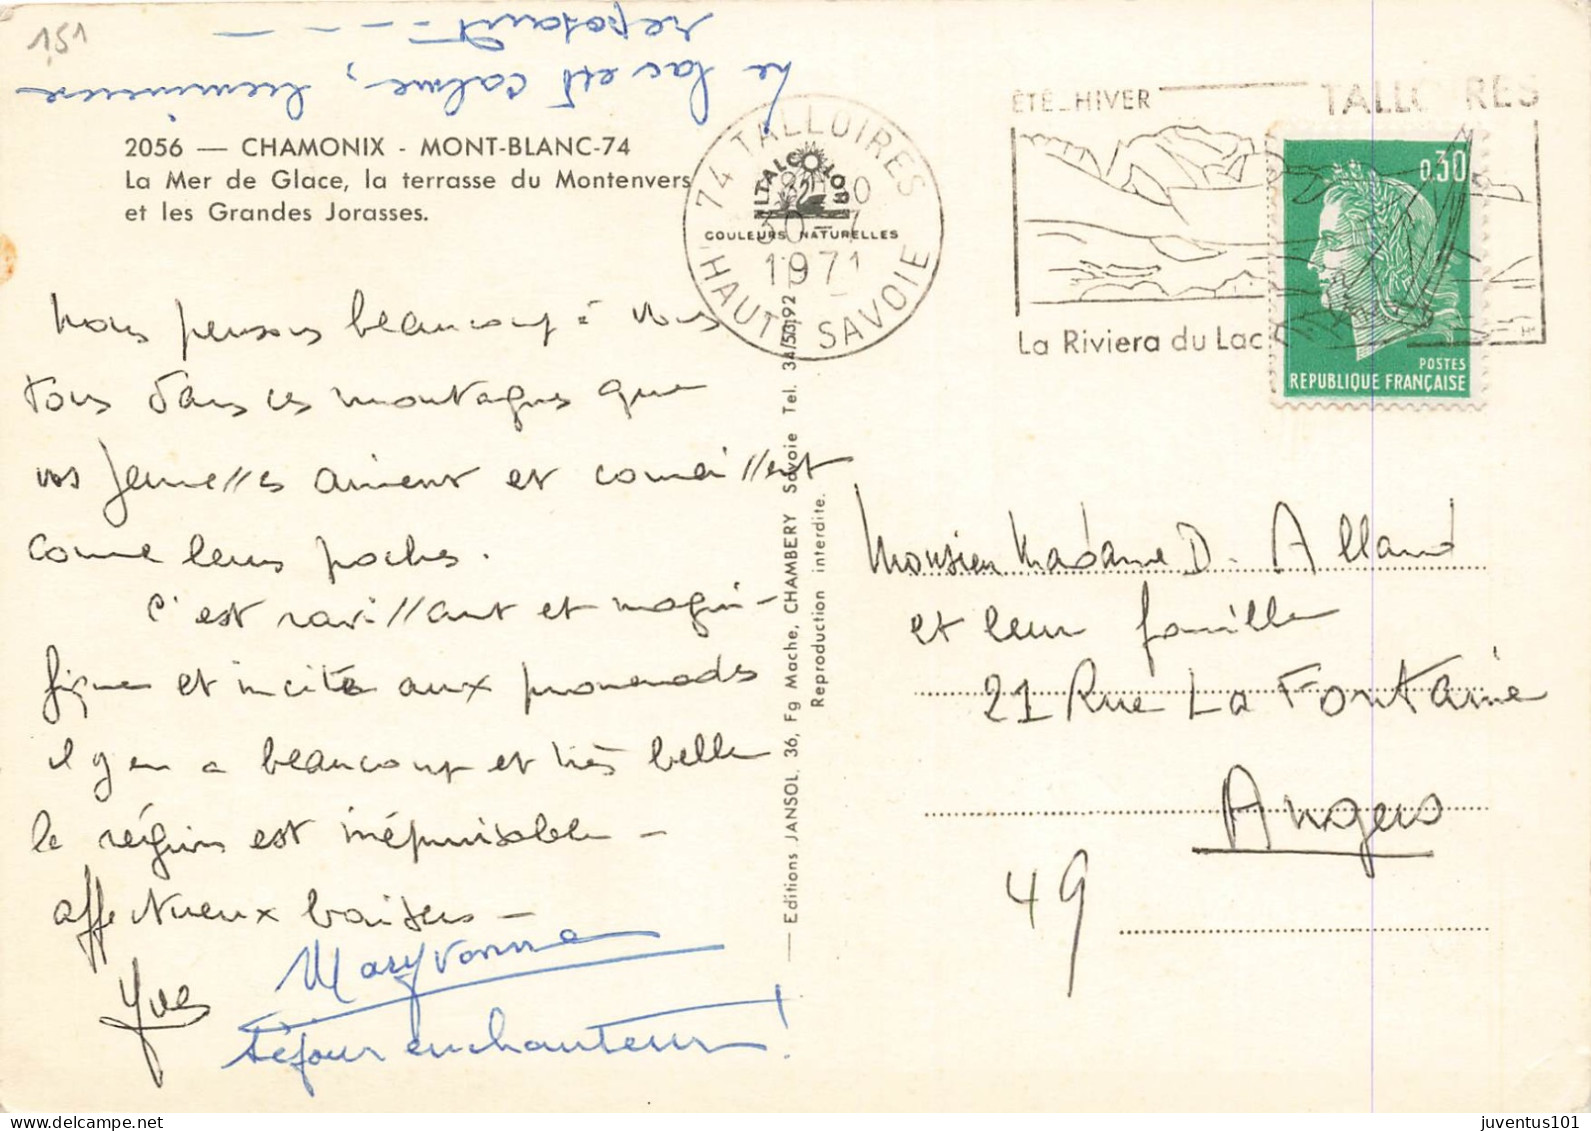 151
Le lac est calme, lumineux
reposant - - -
2056 — CHAMONIX - MONT-BLANC-74
La Mer de Glace, la terrasse du Montenvers
et les Grandes Jorasses.
Nous pensons beaucoup à vous
tous dans ces montagnes que
vos jumelles aiment et connaissent
comme leurs poches.
C'est ravissant et magni-
fique et incite aux promenades
il y en a beaucoup et très belle
la région est inépuisable —
affectueux baisers —
Yves
Maryvonne
séjour enchanteur !
74 TALLOIRES
HAUTE SAVOIE
30 - 7
1971
ITALCOLOR
COULEURS NATURELLES
— Editions JANSOL, 36, Fg Mache, CHAMBERY Savoie Tel. 34/50.92 —
Reproduction interdite.
ÉTÉ_HIVER TALLOIRES
La Riviera du Lac
0,30
POSTES
REPUBLIQUE FRANÇAISE
Monsieur Madame D. Alland
et leur famille
21 Rue La Fontaine
Angers
49
juventus101